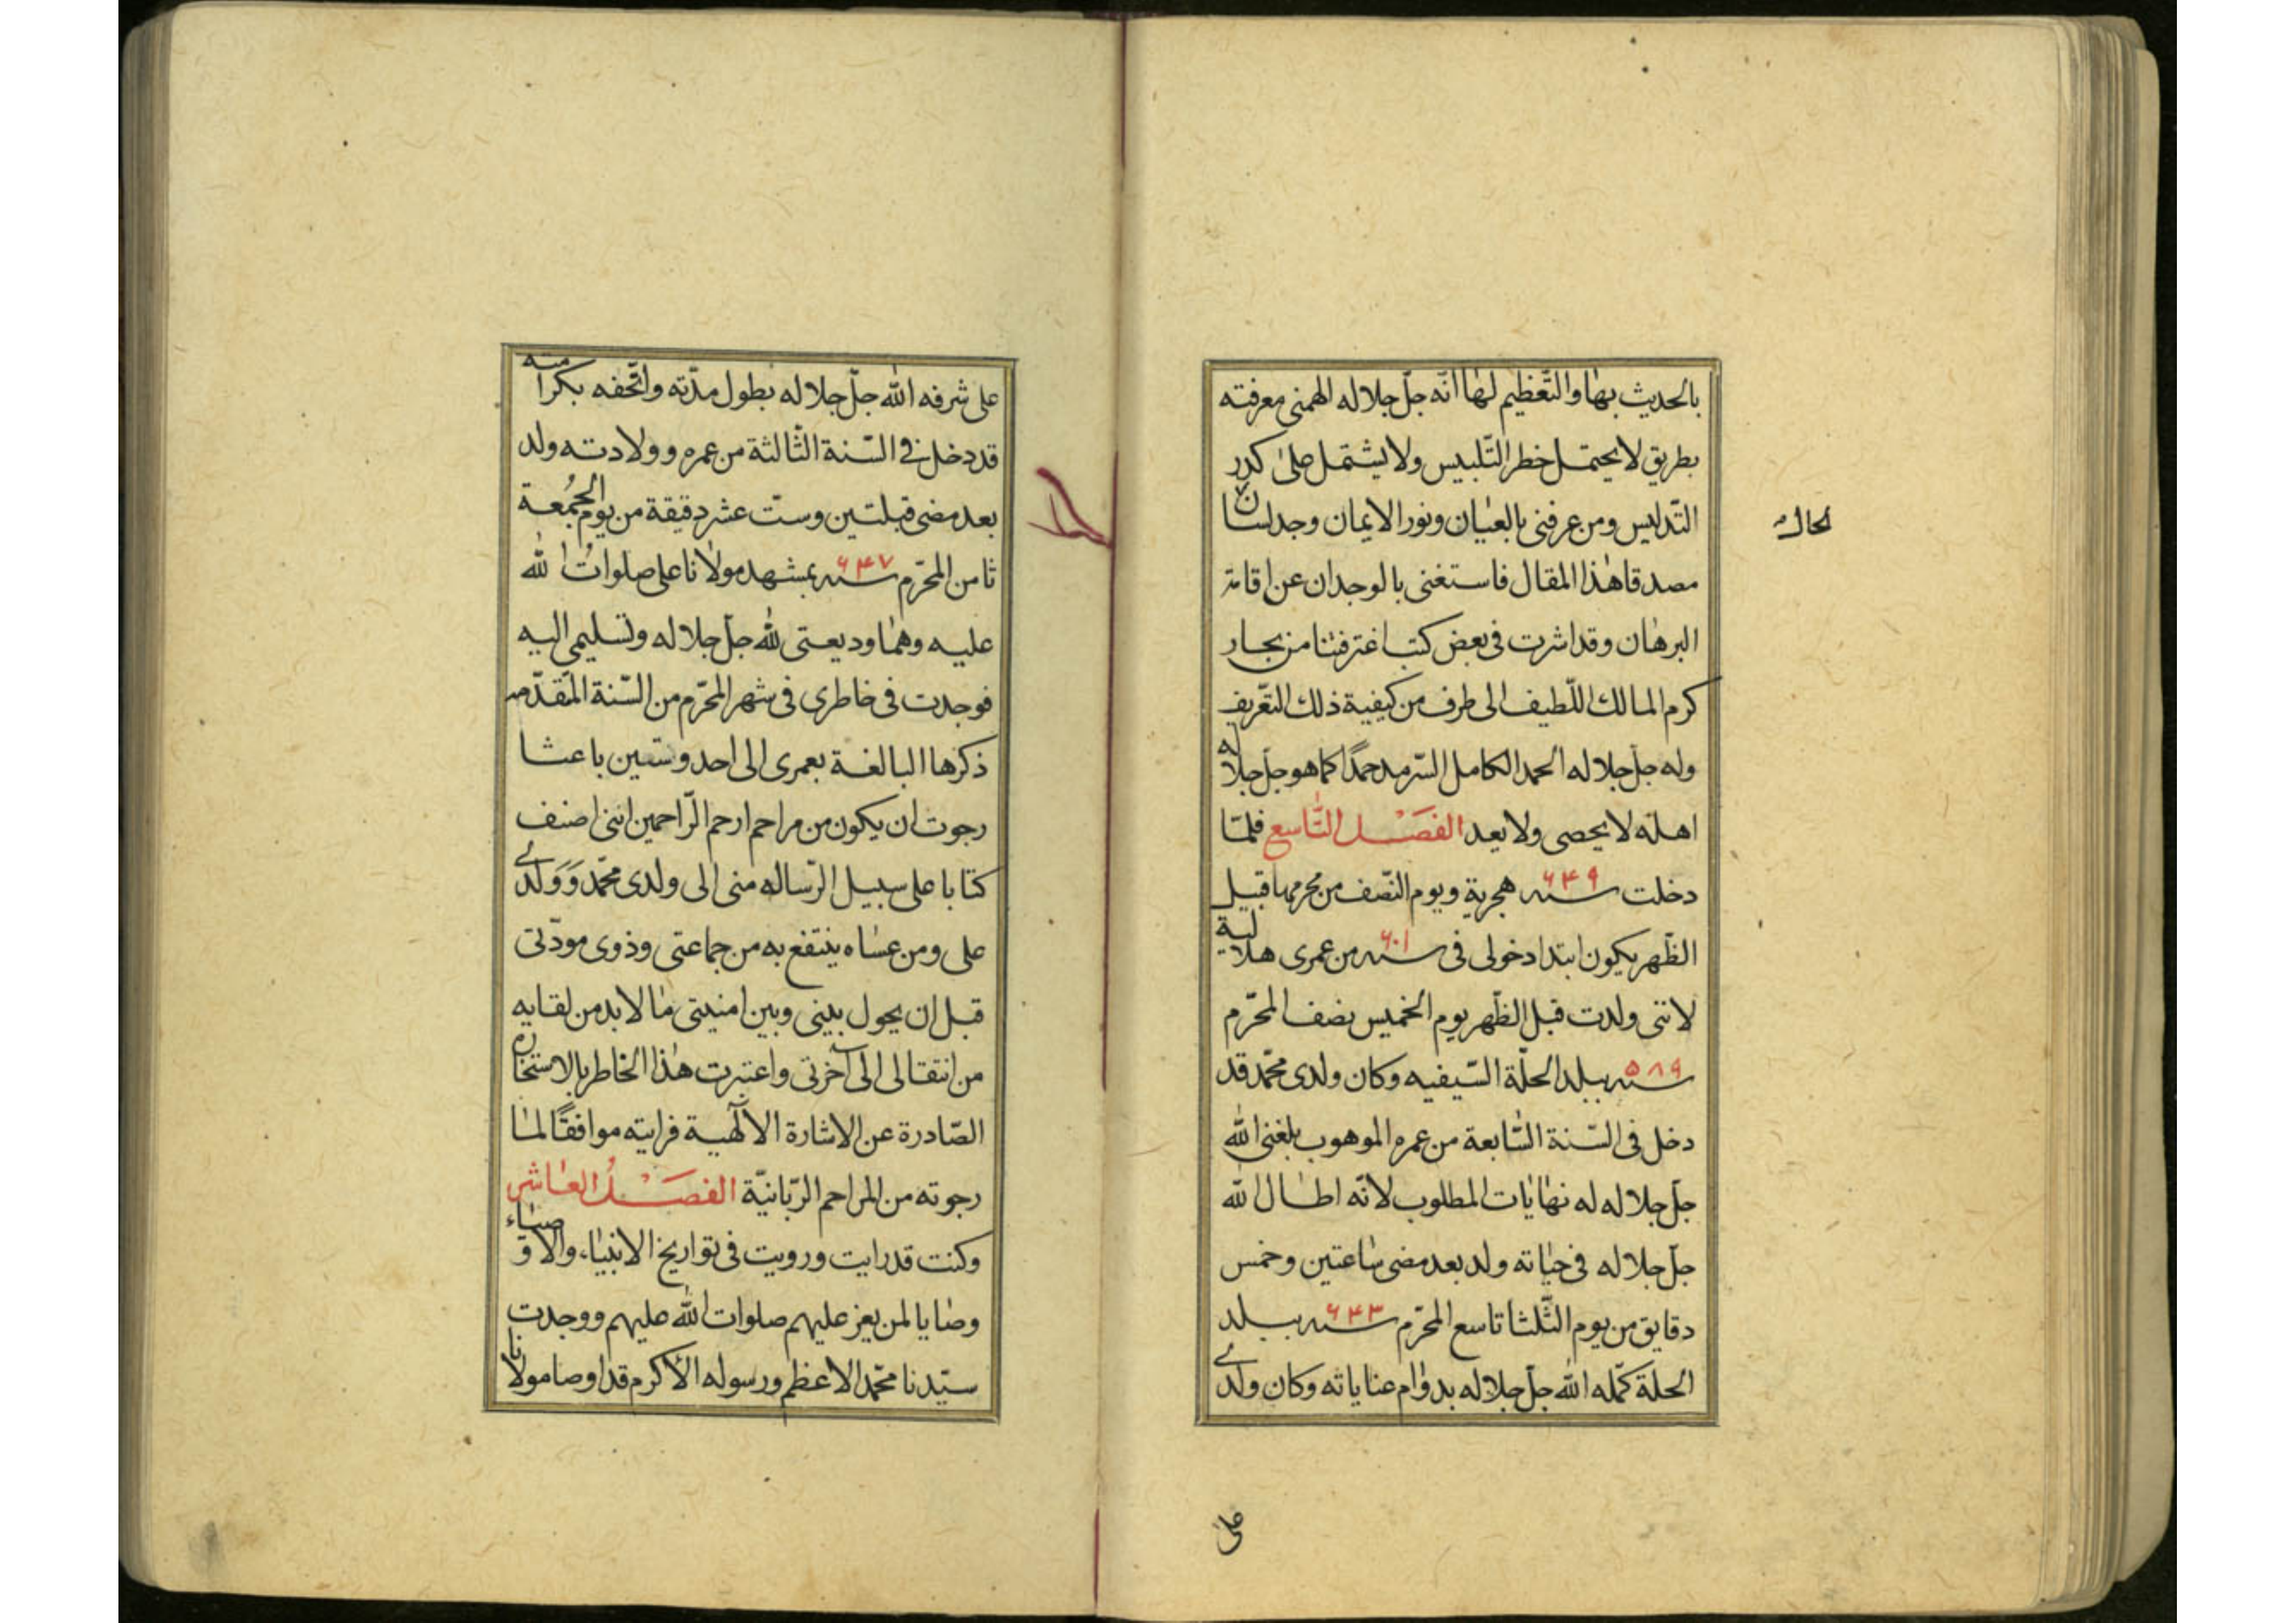 بالحديث بها والتّعظيم لها انّه جلّ جلاله الهمنى معرفته
بطريق لا يحتمل خطر التّلبيس ولا يشتمل على كدر
التّدليس ومن عرفنى بالعيان ونور الايمان وجد لسان
الحال
مصدقا هذا المقال فاستغنى بالوجدان عن اقامة
البرهان وقد اشرت فى بعض كتب اغترفتنا من بحار
كرم المالك اللّطيف الى طرف من كيفية ذلك التّعريف
وله جلّ جلاله الحمد الكامل السّرمد حمدًا كما هو جلّ جلاله
اهله لا يحصى ولا يعد الفصل التّاسع فلمّا
دخلت سنه ۶۴۹ هجرية ويوم النّصف من محرمها قبيل
الظّهر يكون ابتدا دخولى فى سنه ۶۰۱ من عمرى هلالية
لانّنى ولدت قبل الظّهر يوم الخميس نصف المحرّم
سنه ۵۸۹ ببلد الحلّة السّيفيه وكان ولدى محمّد قد
دخل فى السّنة السّابعة من عمره الموهوب بلغنى الله
جلّ جلاله له نهايات المطلوب لانّه اطال الله
جلّ جلاله فى حياته ولد بعد مضى ساعتين وخمس
دقايق من يوم الثّلثا تاسع المحرّم سنه ۶۴۳ ببلد
الحلة كمّله الله جلّ جلاله بدوام عناياته وكان ولدى
على
على شرفه الله جلّ جلاله بطول مدّته واتّحفه بكرامته
قد دخل فى السّنة الثّالثة من عمره وولادته ولد
بعد مضى قبلتين وستّ عشر دقيقة من يوم الجمُعة
ثامن المحرّم سنه ۶۴۷ بمشهد مولانا على صلواتُ الله
عليه وهما وديعتى لله جلّ جلاله وتسليمى اليه
فوجدت فى خاطرى فى شهر المحرّم من السّنة المّقدّمه
ذكرها البالغة بعمرى الى احد وستين باعثا
رجوت ان يكون من مراحم ارحم الرّاحمين اننى اصنف
كتابا على سبيل الرّساله منى الى ولدى محمّد وَوَلدى
على ومن عساه ينتفع به من جماعتى وذوى مودّتى
قبل ان يحول بينى وبين امنيتى ما لا بد من لقايه
من انتقالى الى آخرتى واعتبرت هذا الخاطر بالاستخاره
الصّادرة عن الاشارة الالٓهية فرايته موافقًا لما
رجوته من المراحم الرّبانيّة الفصلُ العاشر
وكنت قد رايت ورويت فى تواريخ الانبياء والاوصياء
وصايا لمن يعز عليهم صلوات الله عليهم ووجدت
سيّدنا محمّد الاعظم ورسوله الأكرم قد اوصا مولانا